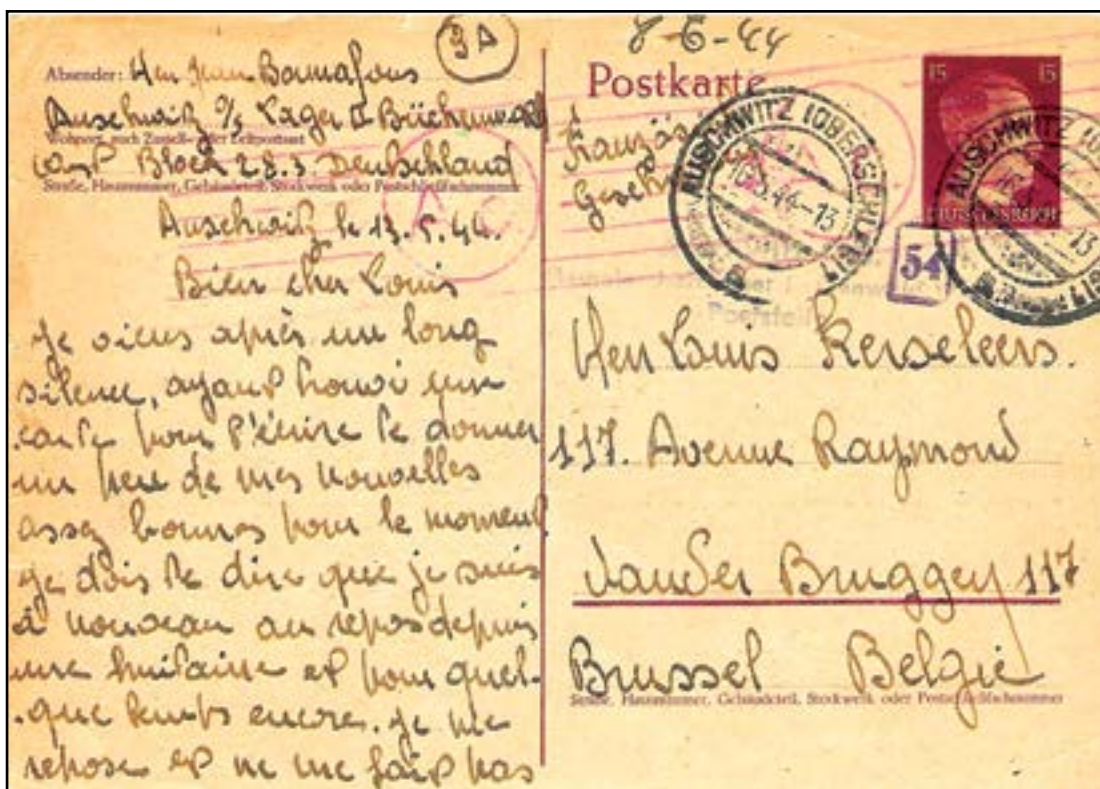 8-6-44
3A
Absender: Herr Jean Bonnafous
Auschwitz O/S Lager II
Wohnort, auch Zustell- oder Leitpostamt
Block 28.3. Deutschland
Straße, Hausnummer, Gebäudeteil, Stockwerk oder Postschließfachnummer
Auschwitz le 13.5.44.
Bien cher Louis
Je viens après un long
silence, ayant trouvé une
carte pour t'écrire te donner
un peu de mes nouvelles
assez bonnes pour le moment
je dois te dire que je suis
à nouveau au repos depuis
une huitaine et pour quel-
que temps encore. je me
repose et ne me fait pas
Postkarte
15 15
AUSCHWITZ (OBERSCHLES)
44-13
54
Herr Louis Kerseleers.
117. Avenue Raymond
Vander Bruggen 117
Brussel Belgie
Straße, Hausnummer, Gebäudeteil, Stockwerk oder Postschließfachnummer